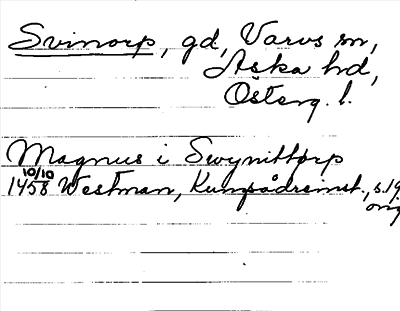 Svinorp, gd, Varvs sn,
Aska hd,
Österg. l.
Magnus i Swynittorp
10/10
1458 Westman, Kungsådreinst., s. 19
orig